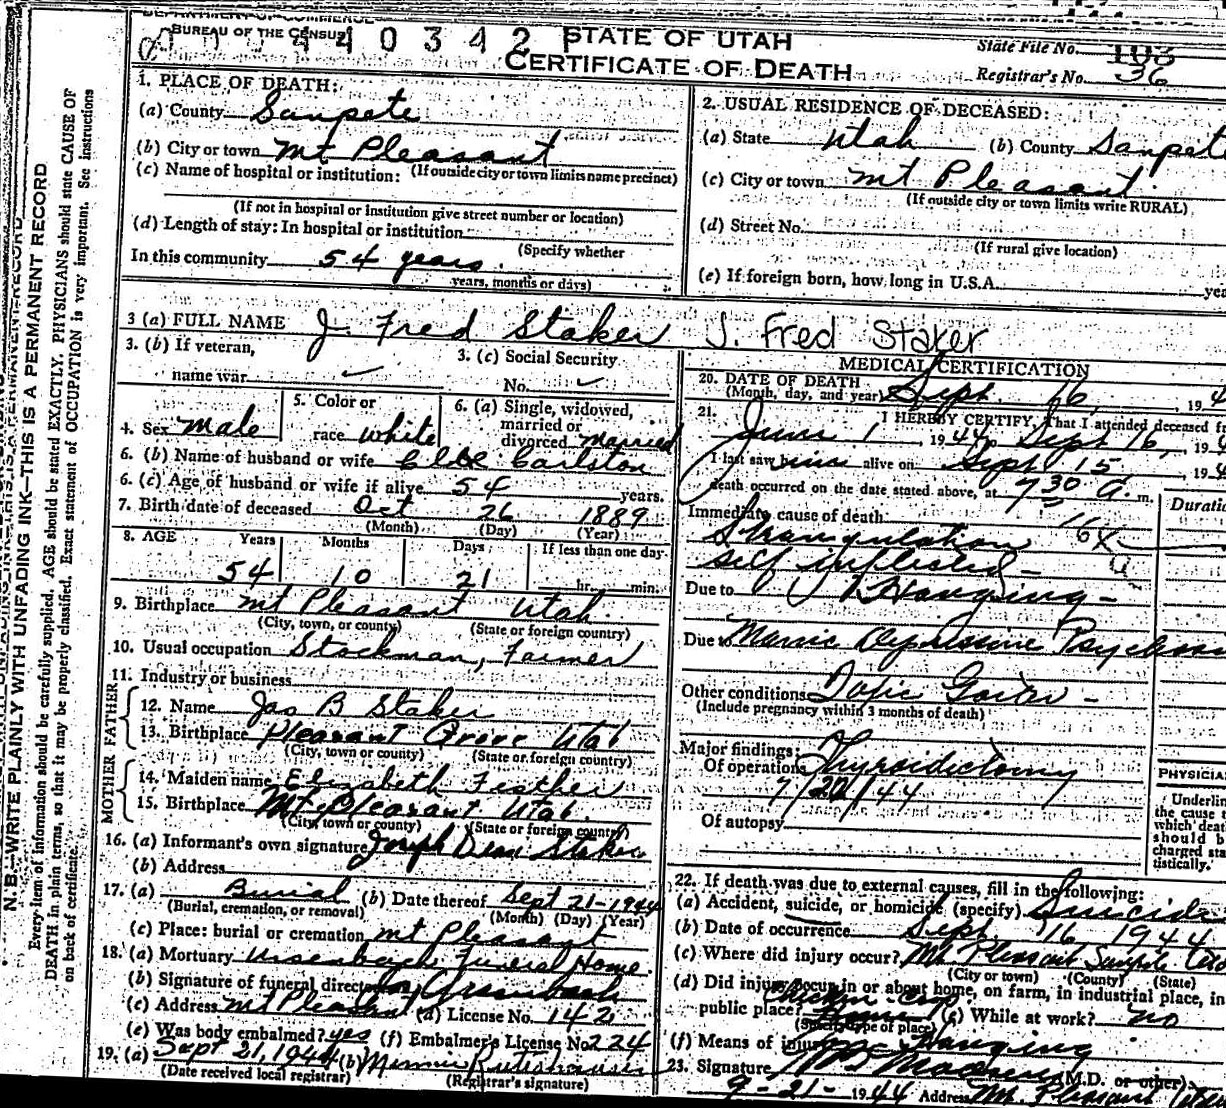 DEPARTMENT OF COMMERCE
BUREAU OF THE CENSUS
4 4 0 3 4 2
STATE OF UTAH
CERTIFICATE OF DEATH
State File No. 108
Registrar's No. 36
N.B.—WRITE PLAINLY WITH UNFADING INK—THIS IS A PERMANENT RECORD
Every item of information should be carefully supplied. AGE should be stated EXACTLY. PHYSICIANS should state CAUSE OF
DEATH in plain terms, so that it may be properly classified. Exact statement of OCCUPATION is very important. See instructions
on back of certificate.
1. PLACE OF DEATH:
(a) County Sanpete
(b) City or town Mt Pleasant
(c) Name of hospital or institution: (If outside city or town limits name precinct)
(If not in hospital or institution give street number or location)
(d) Length of stay: In hospital or institution
(Specify whether
In this community 54 years.
years, months or days)
2. USUAL RESIDENCE OF DECEASED:
(a) State Utah (b) County Sanpete
(c) City or town Mt Pleasant.
(If outside city or town limits write RURAL)
(d) Street No.
(If rural give location)
(e) If foreign born, how long in U.S.A.
3 (a) FULL NAME J. Fred Staker J. Fred Staker
3. (b) If veteran,
name war
3. (c) Social Security
No.
4. Sex Male
5. Color or
race White
6. (a) Single, widowed,
married or
divorced Married
6. (b) Name of husband or wife Carlston
6. (c) Age of husband or wife if alive 54 years.
7. Birth date of deceased Oct 26 1889
(Month) (Day) (Year)
8. AGE Years Months Days If less than one day
54 10 21 hr. min.
9. Birthplace Mt Pleasant Utah
(City, town, or county) (State or foreign country)
10. Usual occupation Stockman, Farmer
11. Industry or business
FATHER
12. Name Jas B Staker
13. Birthplace Pleasant Grove Utah
(City, town or county) (State or foreign country)
MOTHER
14. Maiden name Elizabeth
15. Birthplace Mt Pleasant Utah.
(City, town or county) (State or foreign country)
16. (a) Informant's own signature Joseph Dean Staker
(b) Address
17. (a) Burial (b) Date thereof Sept 21-1944
(Burial, cremation, or removal) (Month) (Day) (Year)
(c) Place: burial or cremation Mt Pleasant
18. (a) Mortuary Ursenbach Funeral Home.
(b) Signature of funeral director
(c) Address Mt Pleasant (d) License No. 142
(e) Was body embalmed? yes (f) Embalmer's License No. 224
19. (a) Sept 21, 1944 (b)
(Date received local registrar) (Registrar's signature)
MEDICAL CERTIFICATION
20. DATE OF DEATH
(Month, day, and year) Sept. 16, 194
21. I HEREBY CERTIFY, That I attended deceased
June 1 1944, Sept 16, 194
I last saw him alive on Sept 15 194
death occurred on the date stated above, at 7 30 A. m.
Duration
Immediate cause of death
Strangulation
self inflicted -
Due to Hanging -
Due to Manic Depressive Psychosis
Other conditions Toxic Goiter -
(Include pregnancy within 3 months of death)
Major findings:
Of operation Thyroidectomy
7/20/44
Of autopsy
PHYSICIAN
Underline
the cause
which death
should be
charged
tistically.
22. If death was due to external causes, fill in the following:
(a) Accident, suicide, or homicide (specify) Suicide
(b) Date of occurrence Sept. 16 1944
(c) Where did injury occur? Mt Pleasant Sanpete Utah
(City or town) (County) (State)
(d) Did injury occur in or about home, on farm, in industrial place, in
public place? Chicken-Coop Home (e) While at work? no
(Specify type of place)
(f) Means of injury Hanging
23. Signature (M.D. or other)
9-21-1944 Address Mt Pleasant Utah